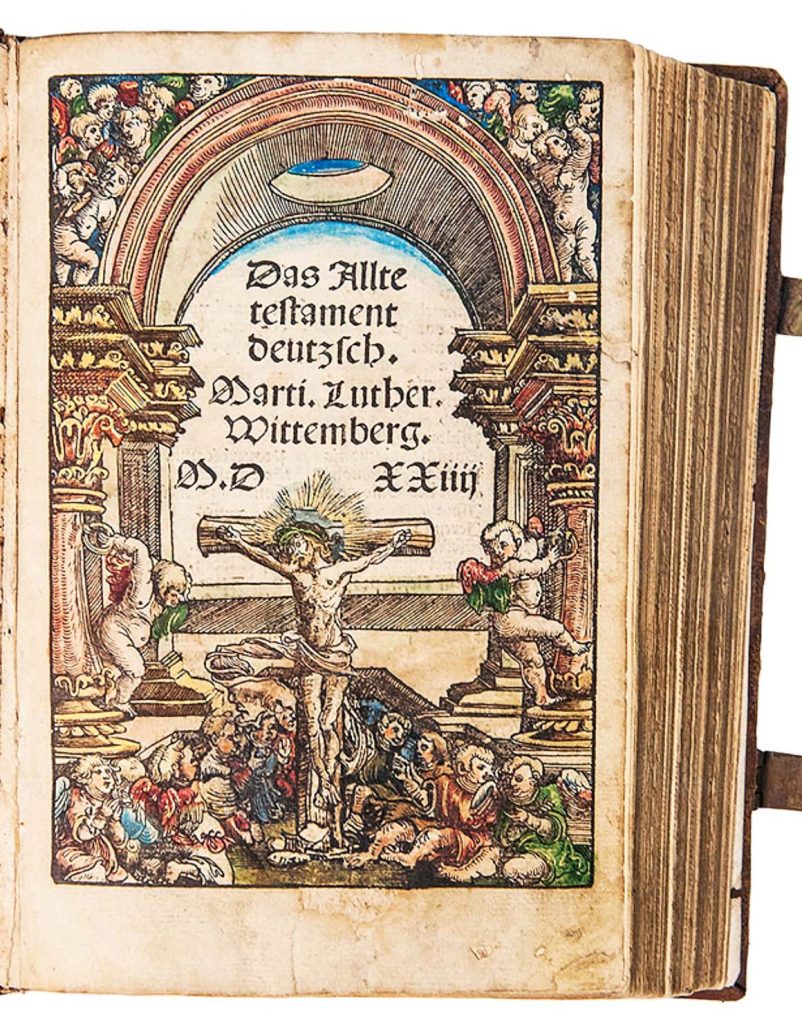 Das Allte
testament
deutzsch.
Marti. Luther.
Wittemberg.
M.D XXiiij